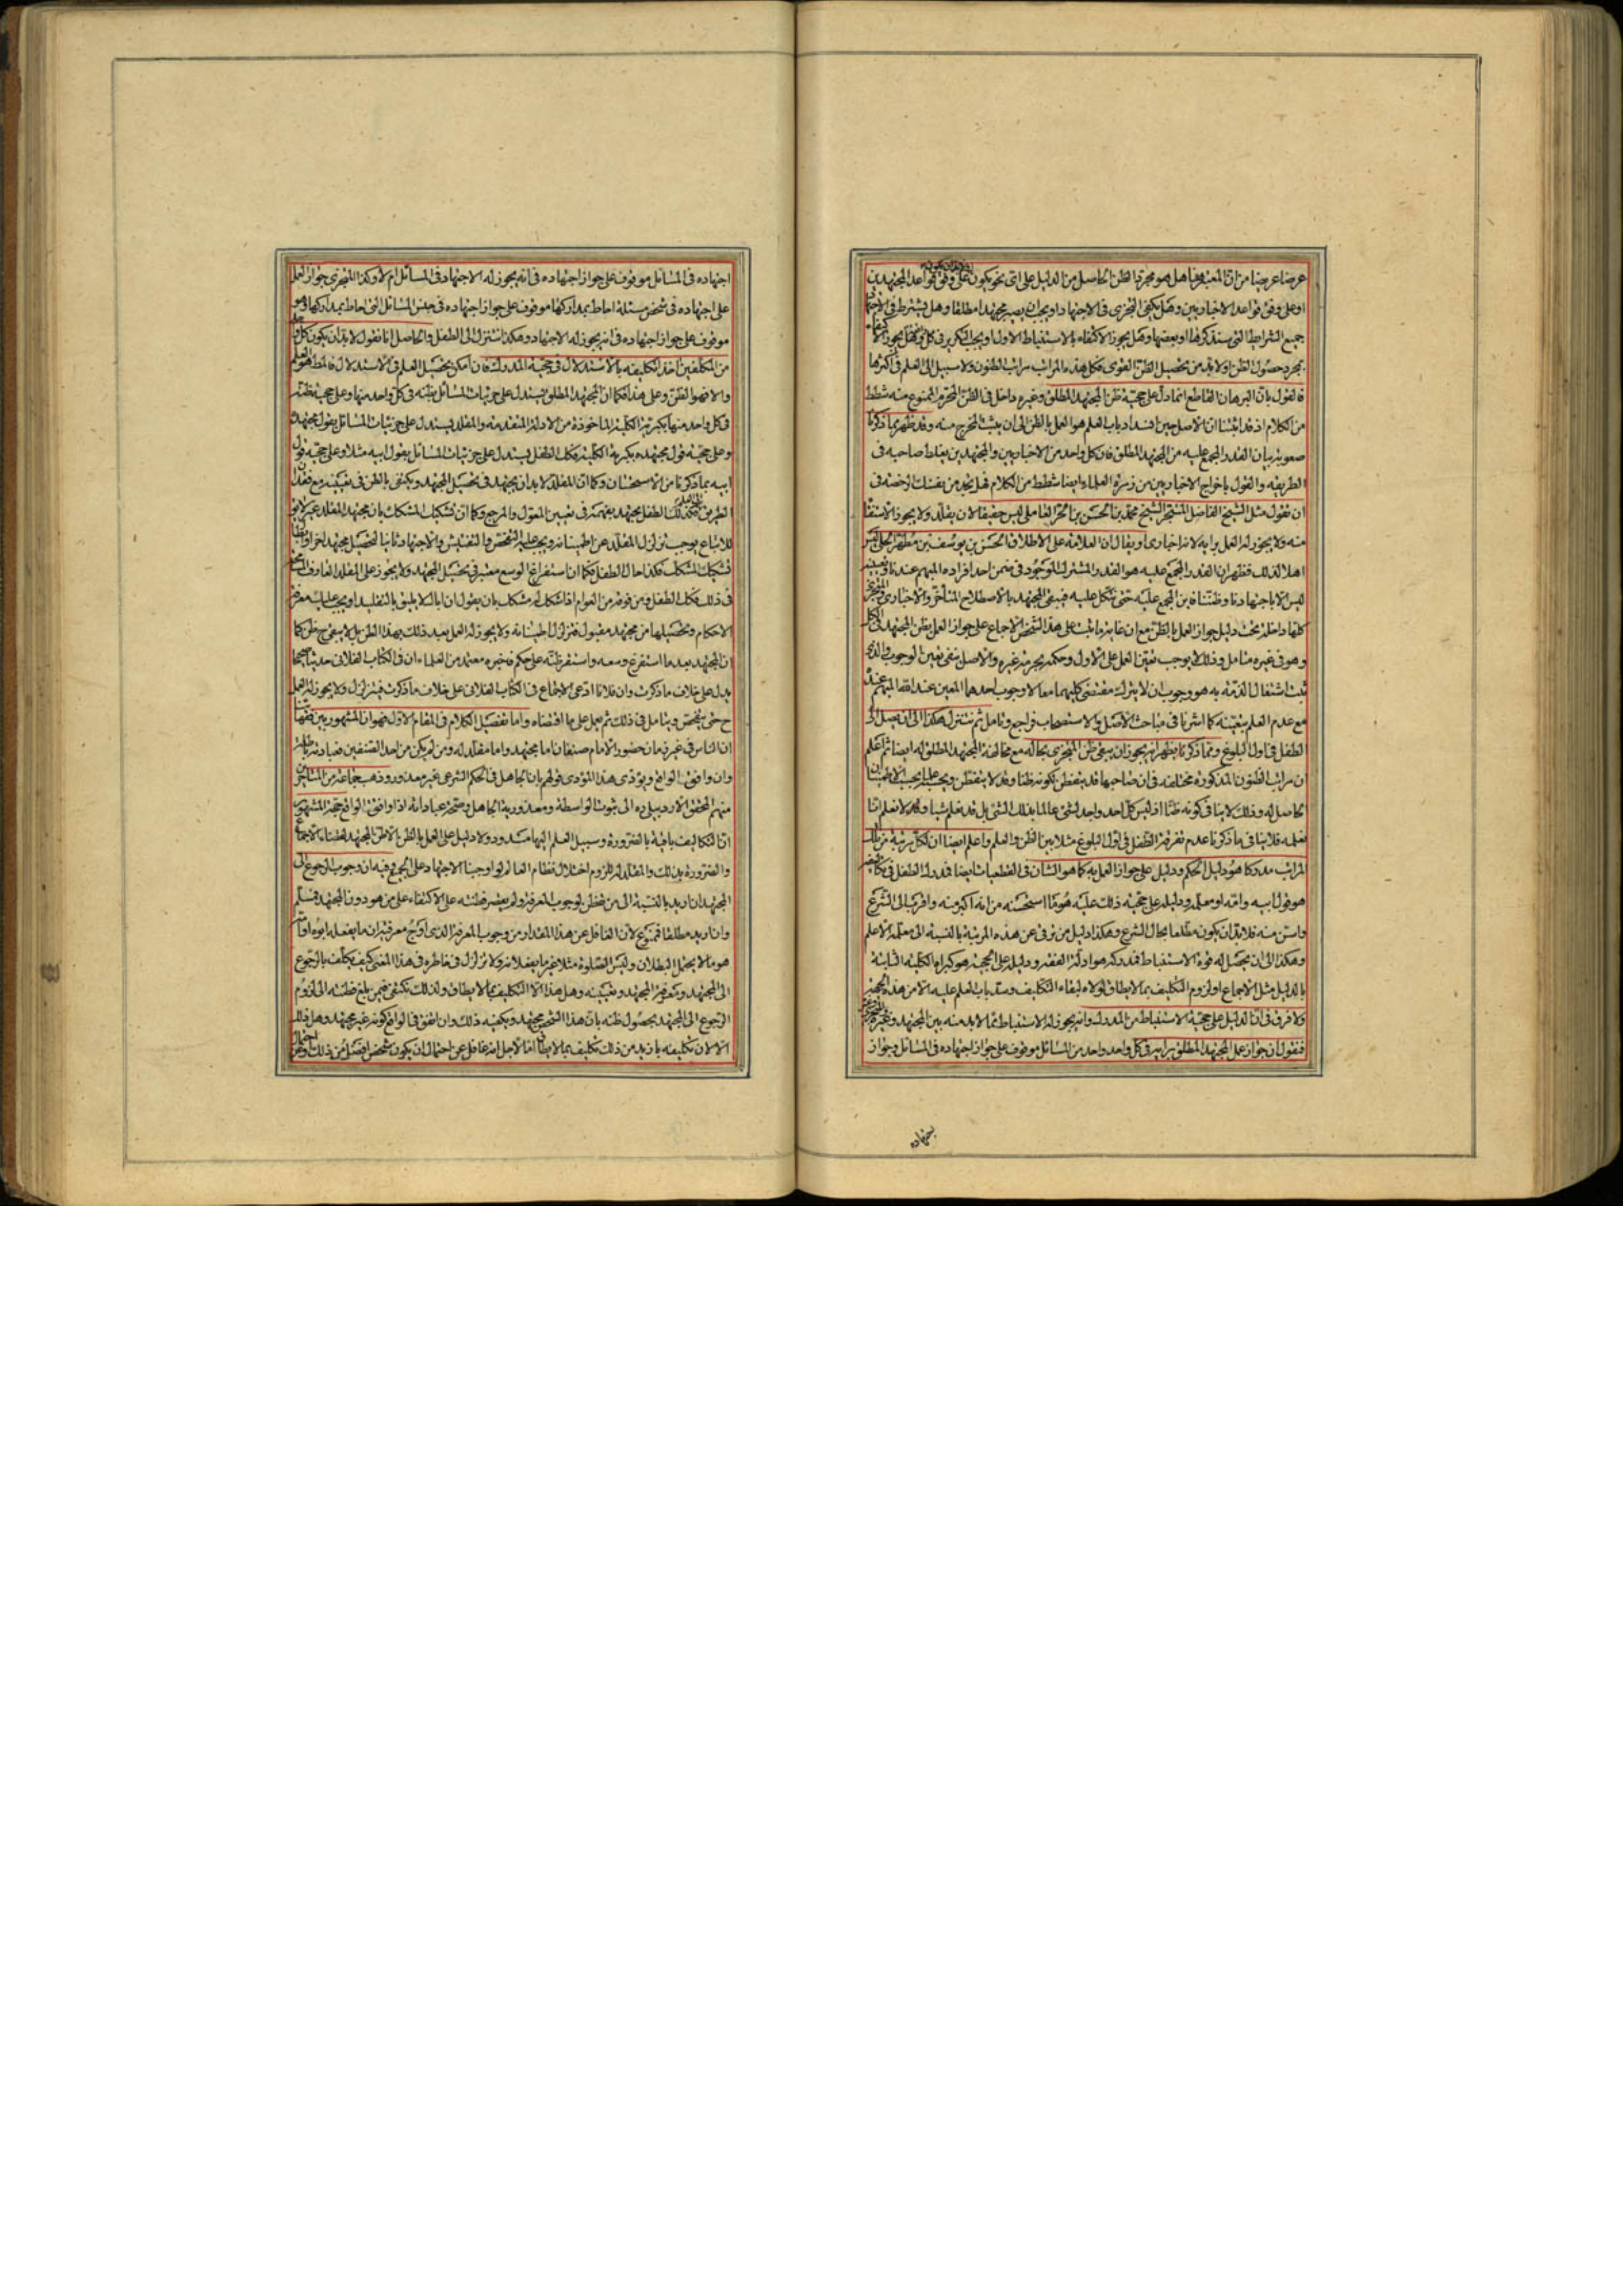 عرضا عريضا من ان المعتبر هنا هل هو مجرد الظن الحاصل من الدليل على اى نحو يكون على وفق قواعد المجتهدين
او على وفق قواعد الاخباريين وهل يكفى التجزى فى الاجتهاد او يجب ان يصير مجتهدا مطلقا وهل يشترط فى
جميع الشرايط التى سنذكرها او بعضها وهل يجوز الاكتفاء بالاستنباط الاول او يجب التكرير فى كل
بمجرد حصول الظن او لا بد من تحصيل الظن القوى فكل هذه المراتب مراتب الظنون ولا سبيل الى العلم فى اكثرها
فالقول بان البرهان القاطع انما دل على حجية ظن المجتهد المطلق وغيره داخل فى الظن المحرم الممنوع منه شطط
من الكلام اذ قد اثبتنا ان الاصل حين انسداد باب العلم هو العمل بالظن الى ان يثبت المخرج منه وقد ظهر بما ذكرنا
صعوبة بيان القدر المجمع عليه من المجتهد المطلق فان كل واحد من الاخباريين والمجتهدين يغلط صاحبه فى
الطريقة والقول باخراج الاخباريين من زمرة العلماء ايضا شطط من الكلام فهل تجد من نفسك الرخصة فى
ان تقول مثل الشيخ الفاضل المتبحر الشيخ محمد بن الحسن بن الحر العاملى ليس حقيقا لان يقلد ولا يجوز الاستفتاء
منه ولا يجوز له العمل برايه لانه اخبارى او يقال ان العلامة على الاطلاق الحسن بن يوسف بن مطهر الحلى ليس
اهلا لذلك فظهر ان القدر المجمع عليه هو القدر المشترك الموجود فى ضمن احد افراده المبهم عندنا وتعيينه
ليس الا باجتهادنا وظننا فاين المجمع عليه حتى نتكل عليه فيبقى المجتهد بالاصطلاح المتاخر والاخبارى
كلها داخلة تحت دليل جواز العمل بالظن مع ان غاية ما ثبت على هذا الشخص الاجماع على جواز العمل بظن المجتهد
وهو فى غيره متامل وذلك لا يوجب تعين العمل على الاول وحكمه بحرمة غيره والاصل ينفى تعيين الوجوب والذى
ثبت اشتغال الذمة به هو وجوب ان لا يترك مقتضى كليهما معا لا وجوب احدهما المعين عند الله المبهم عنده
مع عدم العلم بتعينه كما اشرنا فى مباحث الاصل والاستصحاب فراجع وتامل ثم نتنزل هكذا الى ان يصل الى
الطفل فى اول البلوغ ومما ذكرنا يظهر انه يجوز ان يبقى ظن المتجزى بحاله مع مخالفة المجتهد المطلق له ايضا ثم اعلم
ان مراتب الظنون المذكورة مختلفة فى ان صاحبها قد يتفطن بكونه ظنا وقد لا يتفطن ويحسبه علما بحسب الاطمينان
الحاصل له وذلك لا ينافى كونه ظنا اذ ليس كل احد واجد لشئ عالما بذلك الشئ بل قد نعلم شيئا ولا نعلم انا
نعلمه فلا ينافى ما ذكرنا عدم تفرقة الطفل فى اول البلوغ مثلا بين الظن والعلم واعلم ايضا ان لكل مرتبة من تلك
المراتب مدركا هو دليل الحكم ودليل على جواز العمل به كما هو الشان فى القطعيات ايضا فمدرك الطفل فى تكاليفه
هو قول ابيه وامه او معلمه ودليله على حجية ذلك عليه هو ما استحسنه من انه اكبر منه واقرب الى الشرع
واسن منه فلا بد ان يكون مطلعا بحال الشرع وهكذا دليل من ترقى عن هذه المرتبة بالنسبة الى معلمه الاعلم
وهكذا الى ان يحصل له قوة الاستنباط فمدركه هو ادلة الفقه ودليله على الحجية هو كبراه الكلية الثابتة
بالدليل مثل الاجماع او لزوم التكليف بما لا يطاق لولاه لبقاء التكليف وسد باب العلم عليه الا من هذه الجهة
ولا فرق فى ان الدليل على حجية الاستنباط من المدرك وانه يجوز له الاستنباط مما لا بد منه بين المجتهد وغيره
فنقول ان جواز عمل المجتهد المطلق برايه فى كل واحد واحد من المسائل موقوف على جواز اجتهاده فى المسائل وجواز
اجتهاده فى المسائل موقوف على جواز اجتهاده فى انه يجوز له الاجتهاد فى المسائل ام لا وكذا المتجزى جواز العمل
على اجتهاده فى شخص مسئلة احاط بمداركها موقوف على جواز اجتهاده فى جنس المسائل التى احاط بمداركها وهو
موقوف على جواز اجتهاده فى انه يجوز له الاجتهاد وهكذا نتنزل الى الطفل والحاصل انا نقول لا بد ان يكون كل
من المكلفين اخذ تكليفه بالاستدلال فى حجية المدرك فان امكن تحصيل العلم فى الاستدلال فالمط هو العلم
والا فهو الظن وعلى هذا فكما ان المجتهد المطلق يستدل على جزئيات المسائل بظنه فى كل واحد منها وعلى حجية ظنه
فى كل واحد منها بكبريته الكلية الماخوذة من الادلة المتقدمة والمقلد يستدل على جزئيات المسائل بقول مجتهده
وعلى حجية قول مجتهده بكبريه الكلية فكك الطفل يستدل على جزئيات المسائل بقول ابيه مثلا وعلى حجية قول
ابيه بما ذكرنا من الاستحسان وكما ان المقلد لا بد ان يجتهد فى تحصيل المجتهد ويكتفى بالظن فى تعيينه مع فقد
الطريق فكذلك الطفل يجتهد بفهمه فى تعيين المعول والمرجع وكما ان تشكيك المشكك بان مجتهد المقلد غير لايق
للاتباع يوجب تزلزل المقلد عن اطمينانه ويجب عليه التفحص والتفتيش والاجتهاد ثانيا لتحصيل مجتهد اخر
تشكيك المشكك فكذا حال الطفل فكما ان استفراغ الوسع معتبر فى تحصيل المجتهد ولا يجوز على المقلد العارف
فى ذلك فكك الطفل ومن فوقه من العوام اذا شكك له مشكك بان يقول ان اباك لا يليق بالتقليد او يجب عليك معرفة
الاحكام وتحصيلها من مجتهد مقبول فتزلزل اطمينانه ولا يجوز له العمل بعد ذلك بهذا الظن بل لا يبقى ح ظن كما
ان المجتهد بعد ما استفرغ وسعه واستقر ظنه على حكم فاخبره معتمد من العلماء ان فى الكتاب الفلانى حديثا صحيحا
يدل على خلاف ما ذكرت وان فلانا ادعى الاجماع فى الكتاب الفلانى على خلاف ما ذكرت فيتزلزل ولا يجوز له العمل
ح حتى يتفحص ويتامل فى ذلك ثم يعمل على ما اقتضاه واما تفصيل الكلام فى المقام الاول فهو ان المشهور بين فقهائنا
ان الناس فى غير زمان حضور الامام صنفان اما مجتهد واما مقلد له ومن لم يكن من احد الصنفين فعبادته باطلة
وان وافقت الواقع ويؤدى هذا المؤدى قولهم بان الجاهل فى الحكم الشرعى غير معذور وذهب جماعة من المتاخرين
منهم المحقق الاردبيلى ره الى ثبوت الواسطة ومعذورية الجاهل وصحة عباداته اذا وافقت الواقع حجة المشهور
ان التكاليف باقية بالضرورة وسبيل العلم اليها مسدود ولا دليل على العمل بالظن الا ظن المجتهد لقضاء الاجماع
والضرورة بذلك والمقلد له للزوم اختلال نظام العالم لو اوجبنا الاجتهاد على الجميع وفيه ان وجوب الرجوع الى
المجتهد ان اريد بالنسبة الى من تفطن لوجوب المعرفة ولم يقصر فطنته على الاكتفاء على من هو دون المجتهد فمسلم
وان اريد مطلقا فممنوع لان الغافل عن هذا المقدار من وجوب المعرفة الذى اوجد معرفته ان ما يفعله ابوه او امه
هو ما لا يحتمل البطلان وليس الصلوة مثلا غير ما يفعلانه ولا تزلزل فى خاطره فى هذا المعنى كيف يكلف بالرجوع
الى المجتهد ومعرفة المجتهد وتعيينه وهل هذا الا التكليف بما لا يطاق ولذلك نكتفى فيمن بلغ فطنته الى لزوم
الرجوع الى المجتهد بحصول ظنه بان هذا الشخص مجتهد ويكفيه ذلك وان اتفق فى الواقع كونه غير مجتهد وهل ذلك
الا لان تكليفه بازيد من ذلك تكليف بما لا يطاق اما لاجل انه غافل عن احتمال ان يكون شخص افضل من ذلك